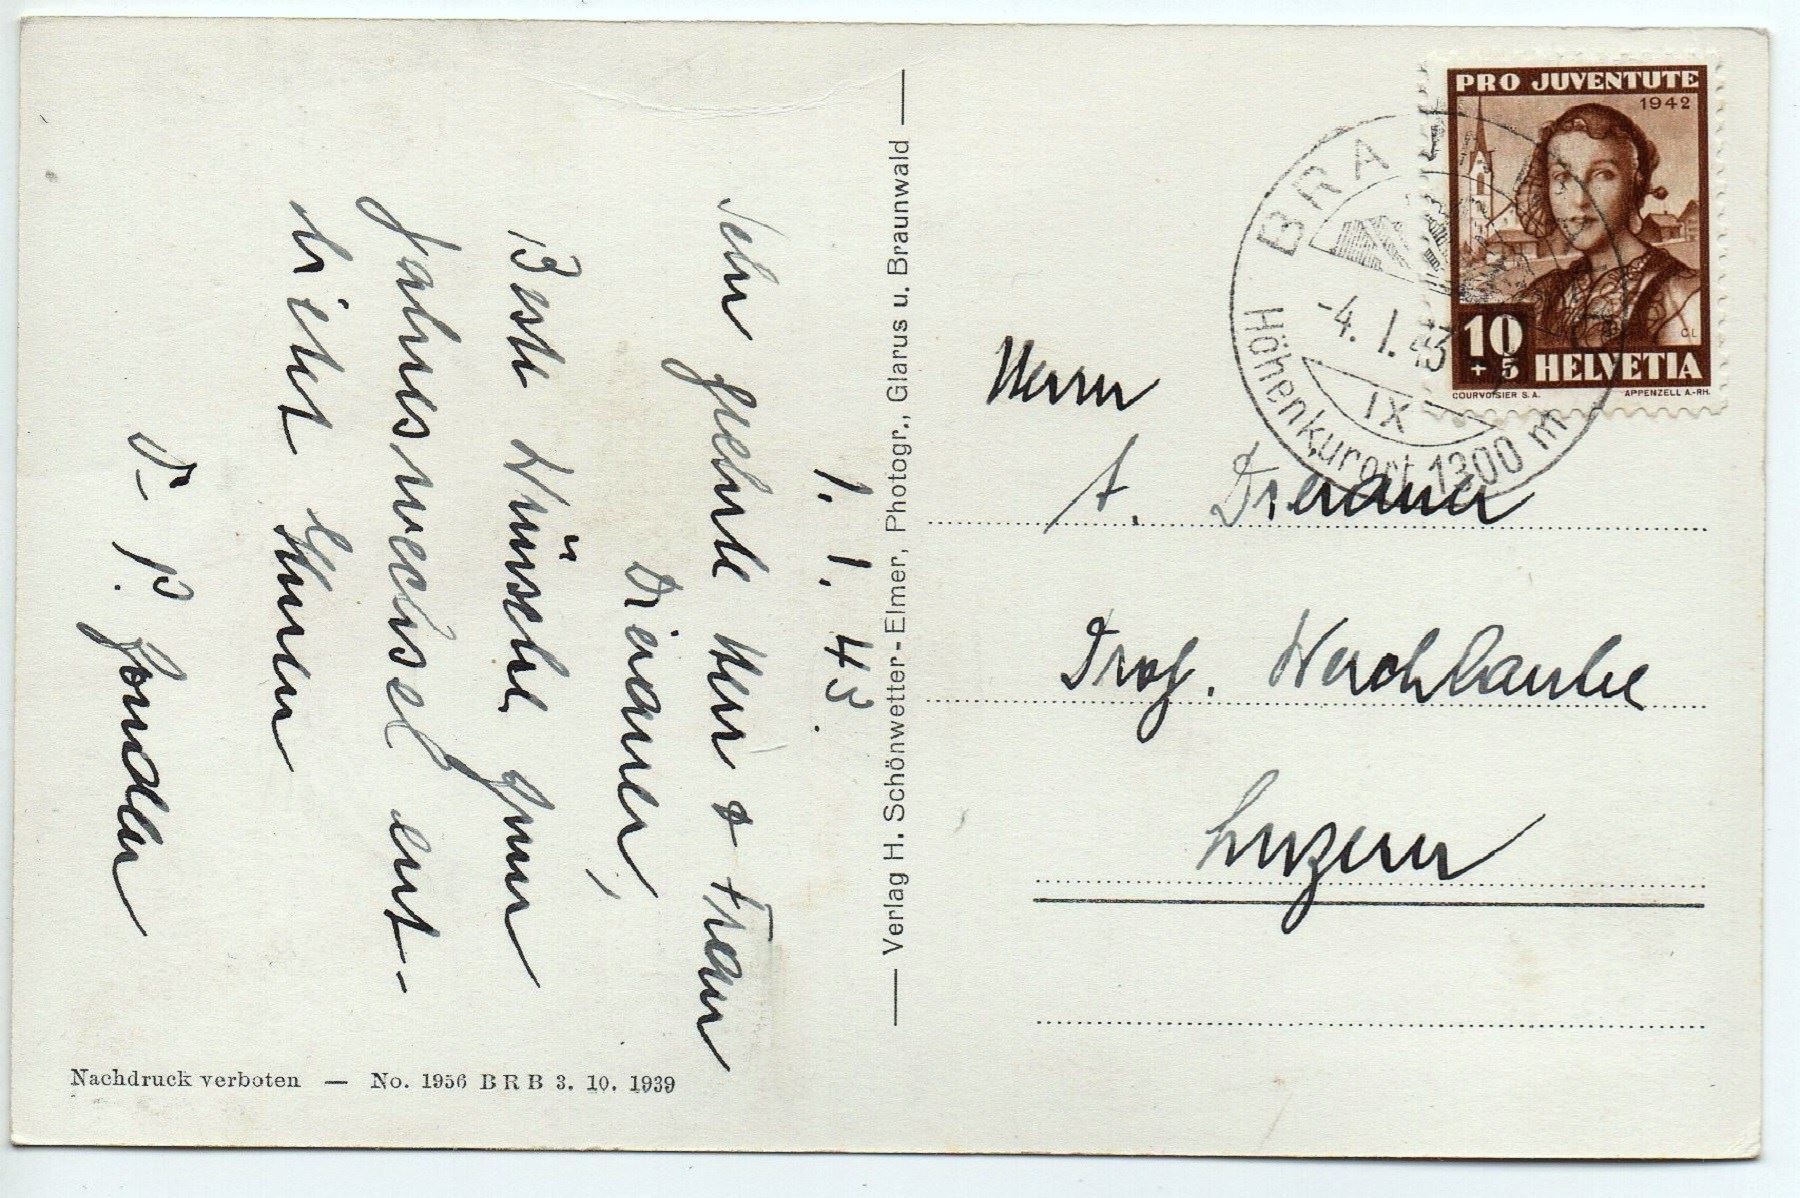 1. 1. 43.
Sehr geehrte Herr & Frau
Beste Wünsche zum
Jahreswechsel ent-
bietet Ihnen
Nachdruck verboten — No. 1956 BRB 3. 10. 1939
— Verlag H. Schönwetter-Elmer, Photogr., Glarus u. Braunwald —
PRO JUVENTUTE
1942
10
+ 5
HELVETIA
COURVOISIER S.A. APPENZELL A.-RH.
BRA
-4. I. 43
IX
Höhenkurort 1300 m
Herrn
A.
Luzern